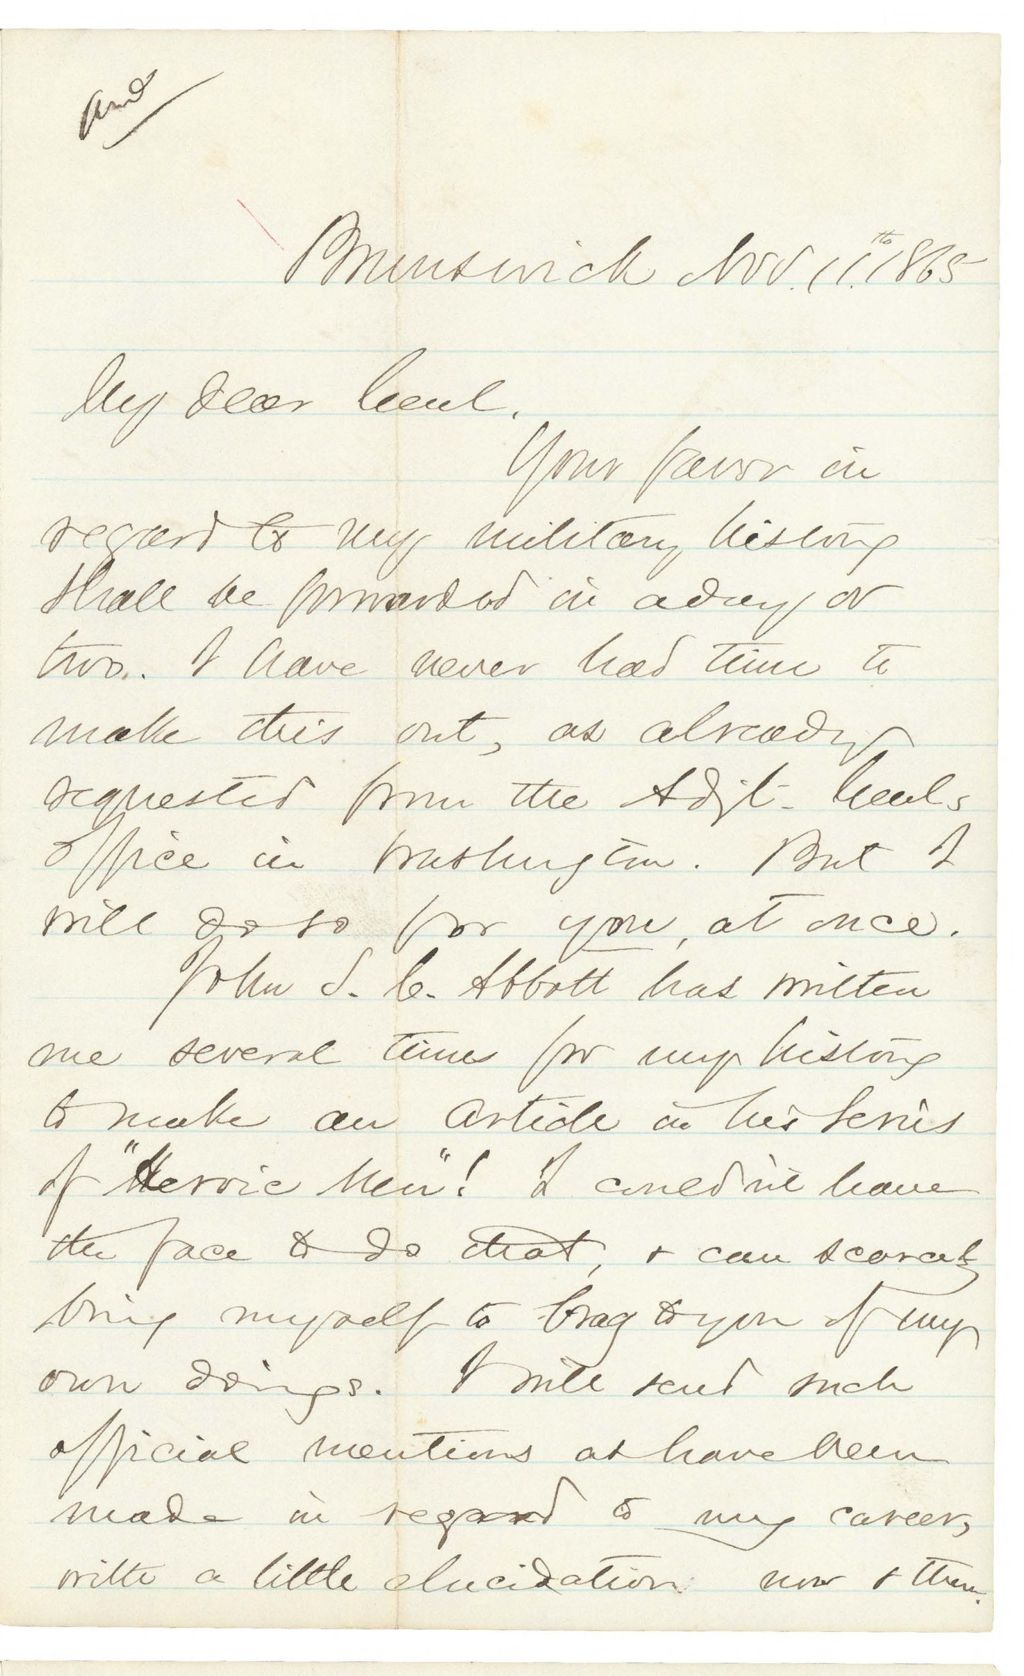 Ansd
Brunswick Nov. 11.th 1865
My dear Genl.
Your favor in
regard to my military history
shall be forwarded in a day or
two. I have never had time to
make this out, as already
requested from the Adjt. Genls
office in Washington. But I
will do so for you, at once.
John S. C. Abbott has written
me several times for my history
to make an article in his series
of "Heroic Men"! I could'nt have
the face to do that, & can scarcely
bring myself to brag to you of my
own doings. I will send such
official mentions as have been
made in regard to my career,
with a little elucidation now & then.